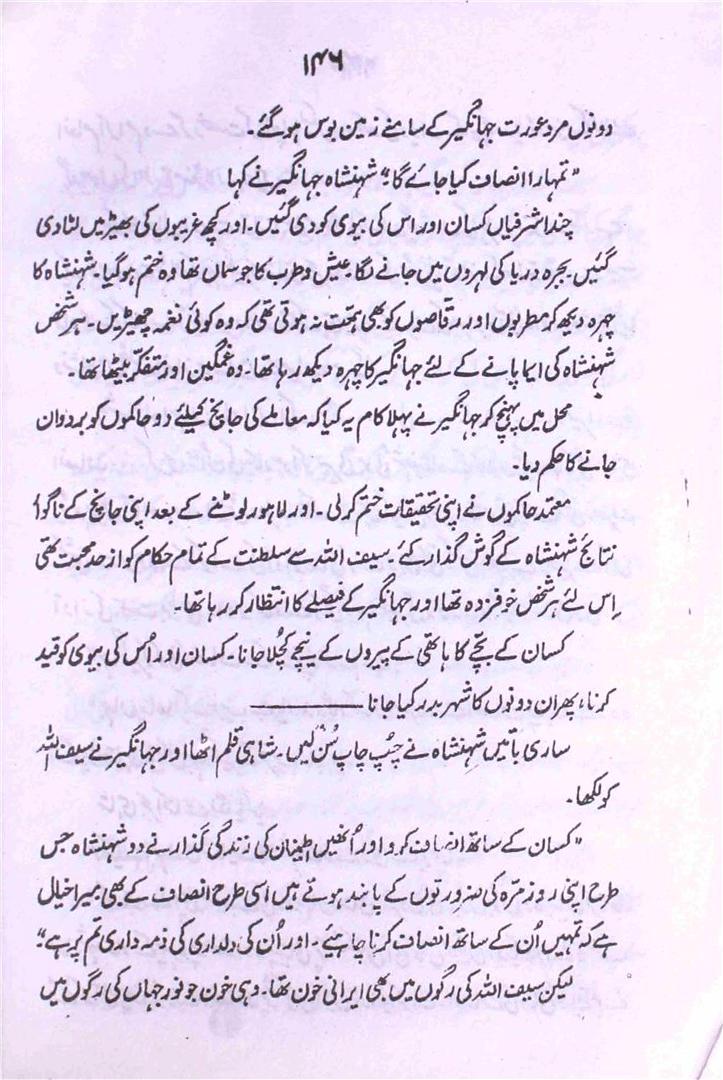 ۱۴۶
دونوں مرد عورت جہانگیر کے سامنے زمین بوس ہو گئے۔
”تمہارا انصاف کیا جائے گا“ شہنشاہ جہانگیر نے کہا
چند اشرفیاں کسان اور اس کی بیوی کو دی گئیں۔ اور کچھ غریبوں کی بھیڑ میں لٹا دی
گئیں بجرہ دریا کی لہروں میں جانے لگا۔ عیش و طرب کا جو سماں تھا وہ ختم ہو گیا۔ شہنشاہ کا
چہرہ دیکھ کر مطربوں اور رقاصوں کو بھی ہمت نہ ہوتی تھی کہ وہ کوئی نغمہ چھیڑیں۔ ہر شخص
شہنشاہ کی ایما پانے کے لئے جہانگیر کا چہرہ دیکھ رہا تھا۔ وہ غمگین اور متفکر بیٹھا تھا۔
محل میں پہنچ کر جہانگیر نے پہلا کام یہ کیا کہ معاملے کی جانچ کیلئے دو حاکموں کو بردوان
جانے کا حکم دیا۔
معتمد حاکموں نے اپنی تحقیقات ختم کر لی۔ اور لاہور لوٹنے کے بعد اپنی جانچ کے ناگوار
نتائج شہنشاہ کے گوش گذار کئے۔ سیف اللہ سے سلطنت کے تمام حکام کو از حد محبت تھی
اِس لئے ہر شخص خوفزدہ تھا اور جہانگیر کے فیصلے کا انتظار کر رہا تھا۔
کسان کے بچّے کا ہاتھی کے پیروں کے نیچے کچُلا جانا۔ کسان اور اُس کی بیوی کو قید
کرنا، پھر ان دونوں کا شہر بدر کیا جانا ــــــــــــــ
ساری باتیں شہنشاہ نے چُپ چاپ سُن لیں۔ شاہی قلم اٹھا اور جہانگیر نے سیف اللہ
کو لکھا۔
”کسان کے ساتھ انصاف کرو اور اُنھیں اطمینان کی زندگی گذارنے دو شہنشاہ جس
طرح اپنی روز مرّہ کی ضرورتوں کے پابند ہوتے ہیں اسی طرح انصاف کے بھی میرا خیال
ہے کہ تمہیں اُن کے ساتھ انصاف کرنا چاہئے۔ اور اُن کی دلداری کی ذمہ داری تم پر ہے“
لیکن سیف اللہ کی رگوں میں بھی ایرانی خون تھا۔ وہی خون جو نور جہاں کی رگوں میں